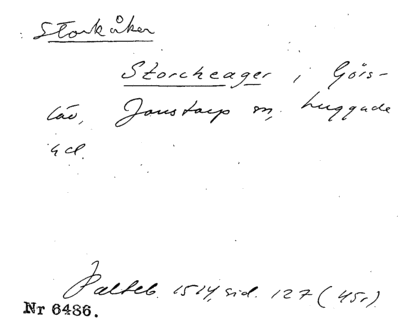 Storkåker
Storcheager i Görs-
löv, Jonstorp sn, huggade
Palteb. 1514, sid. 127 (451)
Nr 6486.